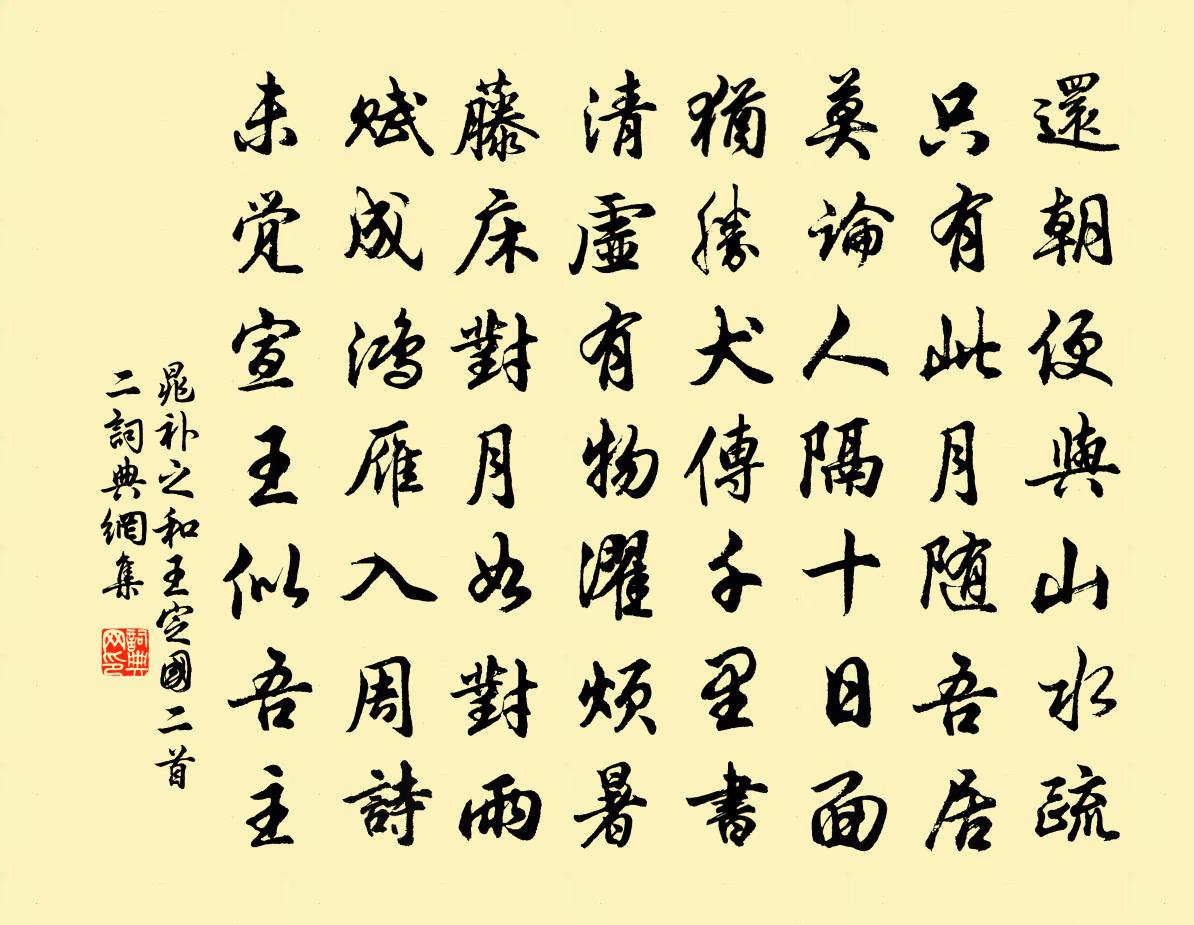 還朝便與山水疏
只有此月随吾居
莫論人隔十日面
猶勝犬傳千里書
清虛有物濯煩暑
藤床對月如對雨
賦成鴻雁入周詩
未覺宣王似吾主
晁补之和王定國二首
二詞典網集
詞典网印